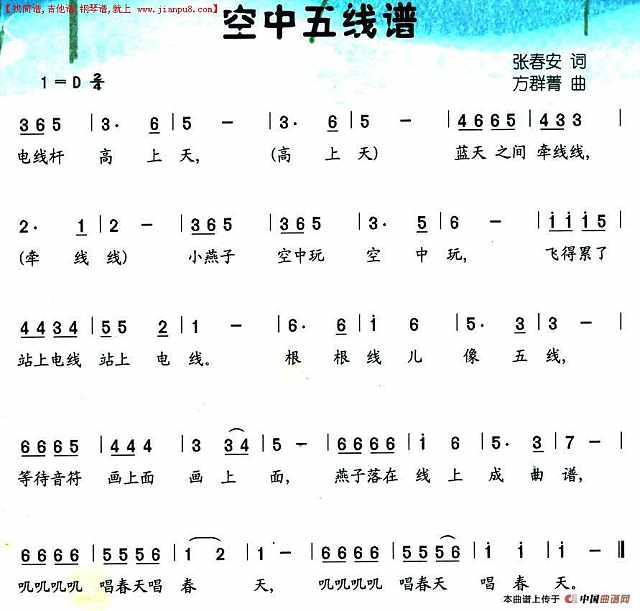 【找简谱,吉他谱,钢琴谱,就上 www.jianpu8.com】
空中五线谱
张春安 词
1=D 2/4 方群菁 曲
3 6 5 | 3· 6 | 5 - | 3· 6 | 5 - | 4 6 6 5 | 4 3 3 3 |
电线杆 高 上 天, (高 上 天) 蓝天 之间 牵线线,
2· 1 | 2 - | 3 6 5 | 3 6 5 | 3· 5 | 6 - | i i i 5 |
(牵 线 线) 小燕子 空中玩 空 中 玩, 飞得累了
4 4 3 4 | 5 5 2 | 1 - | 6· 6 | i 6 | 5· 3 | 3 - |
站上电线 站上 电 线。 根 根 线 儿 像 五 线,
6 6 6 5 | 4 4 4 | 3 3 4 | 5 - | 6 6 6 6 | i 6 | 5· 3 | 7 - |
等待音符 画上面 画 上 面, 燕子落在 线 上 成 曲 谱,
6 6 6 6 | 5 5 5 6 | 1 2 | 1 - | 6 6 6 6 | 5 5 5 6 | i i | i - ‖
叽叽叽叽 唱春天唱 春 天, 叽叽叽叽 唱春天 唱 春 天。
本曲谱上传于 中国曲谱网